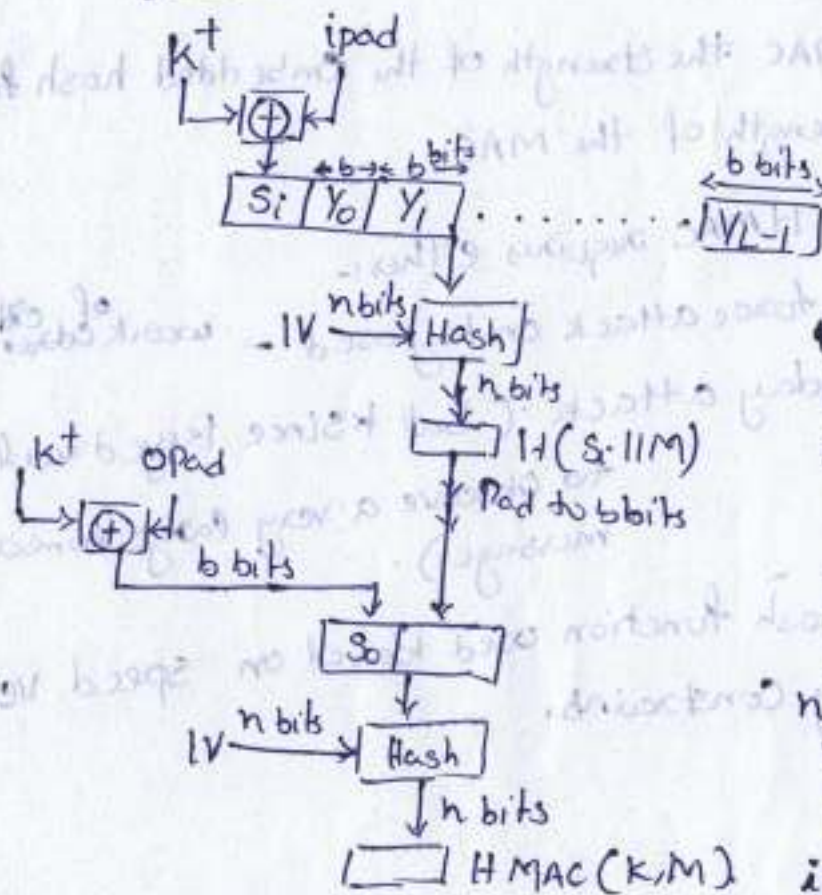 K+ ipad
⊕
b b bits b bits
Si Y0 Y1 . . . . . . . . YL-1
IV n bits Hash
n bits
H(Si||M)
K+ opad
Pad to b bits
⊕
b bits
S0
IV n bits Hash
n
n bits
HMAC(K,M)
i